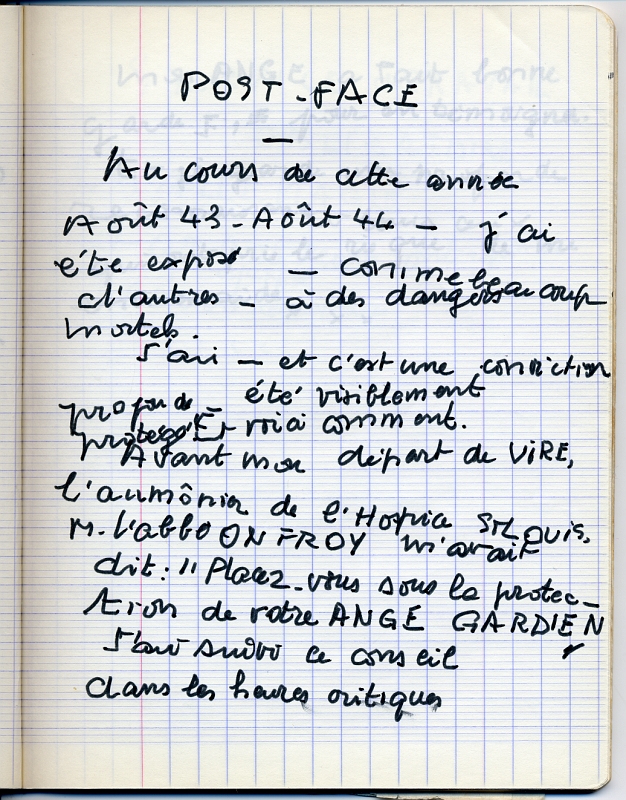 POST-FACE
—
Au cours de cette année
Août 43 - Août 44 — j'ai
été exposé — comme beaucoup
d'autres — à des dangers
mortels.
J'ai — et c'est une conviction
profonde — été visiblement
protégé. Et voici comment.
Avant mon départ de VIRE,
l'aumônier de l'Hospice St LOUIS,
M. l'abbé ONFROY m'avait
dit : "Placez-vous sous la protec-
tion de votre ANGE GARDIEN
J'ai suivi ce conseil
dans les heures critiques